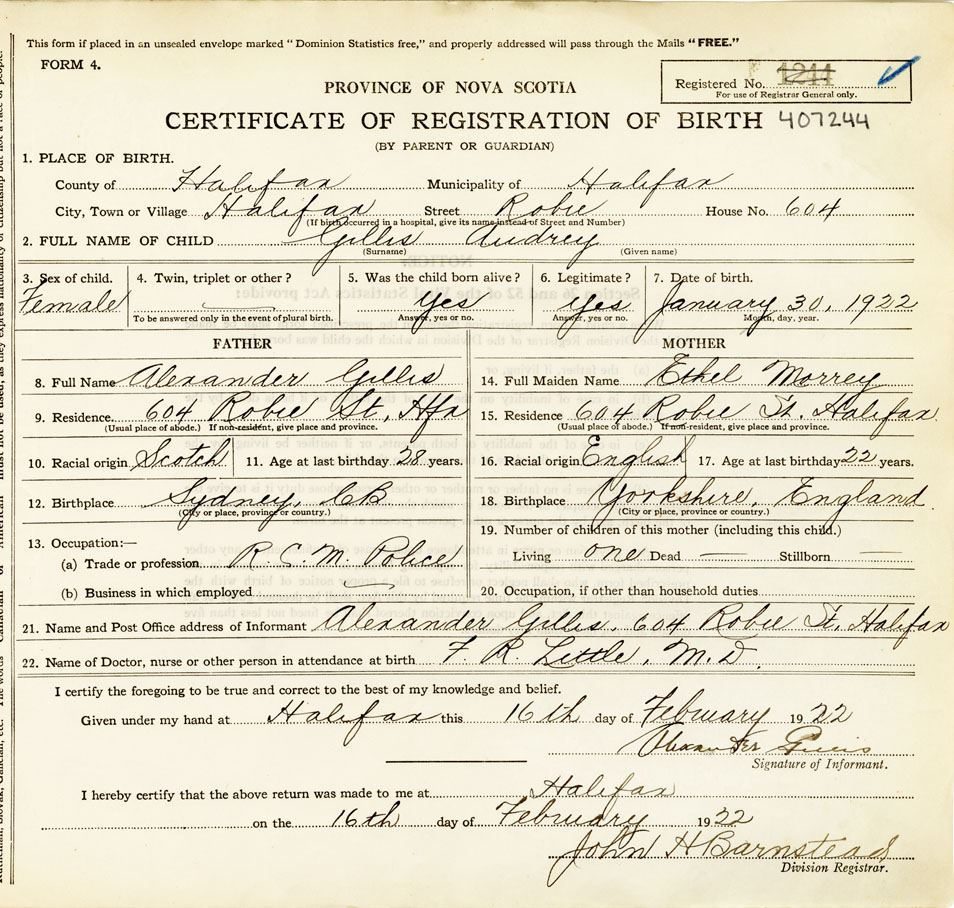 This form if placed in an unsealed envelope marked "Dominion Statistics free," and properly addressed will pass through the Mails "FREE."
FORM 4.
Registered No. 1244
For use of Registrar General only.
PROVINCE OF NOVA SCOTIA
CERTIFICATE OF REGISTRATION OF BIRTH 407244
(BY PARENT OR GUARDIAN)
1. PLACE OF BIRTH.
County of Halifax Municipality of Halifax
City, Town or Village Halifax Street Robie House No. 604
(If birth occurred in a hospital, give its name instead of Street and Number)
2. FULL NAME OF CHILD Gillis Audrey
(Surname) (Given name)
3. Sex of child. 4. Twin, triplet or other? 5. Was the child born alive? 6. Legitimate? 7. Date of birth.
Female — Yes Yes January 30, 1922
To be answered only in the event of plural birth. Answer, yes or no. Answer, yes or no. Month, day, year.
FATHER MOTHER
8. Full Name Alexander Gillis 14. Full Maiden Name Ethel Morrey
9. Residence 604 Robie St. Hfx 15. Residence 604 Robie St. Halifax
(Usual place of abode.) If non-resident, give place and province. (Usual place of abode.) If non-resident, give place and province.
10. Racial origin Scotch 11. Age at last birthday 28 years. 16. Racial origin English 17. Age at last birthday 22 years.
12. Birthplace Sydney, CB 18. Birthplace Yorkshire, England.
(City or place, province or country.) (City or place, province or country.)
19. Number of children of this mother (including this child.)
13. Occupation:— Living one Dead — Stillborn —
(a) Trade or profession R. C. M. Police
(b) Business in which employed — 20. Occupation, if other than household duties
21. Name and Post Office address of Informant Alexander Gillis, 604 Robie St. Halifax
22. Name of Doctor, nurse or other person in attendance at birth F. R. Little, M.D.
I certify the foregoing to be true and correct to the best of my knowledge and belief.
Given under my hand at Halifax this 16th day of February 1922
Alexander Gillis
Signature of Informant.
I hereby certify that the above return was made to me at Halifax
on the 16th day of February 1922
John H Barnstead
Division Registrar.